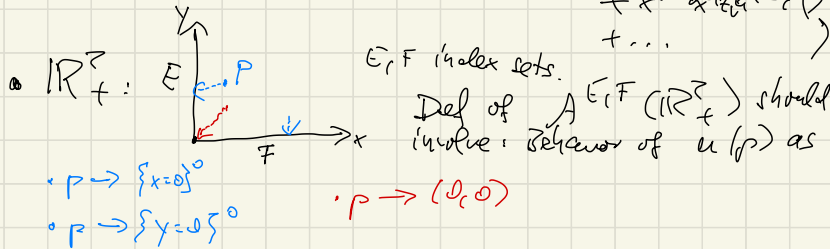 + ...
• ℝ²₊ :
Y
E
P
x
F
E, F index sets.
Def of A^{E,F}(ℝ²₊) should
involve: Behavior of u(p) as
• p → {x=0}°
• p → {y=0}°
• p → (0,0)